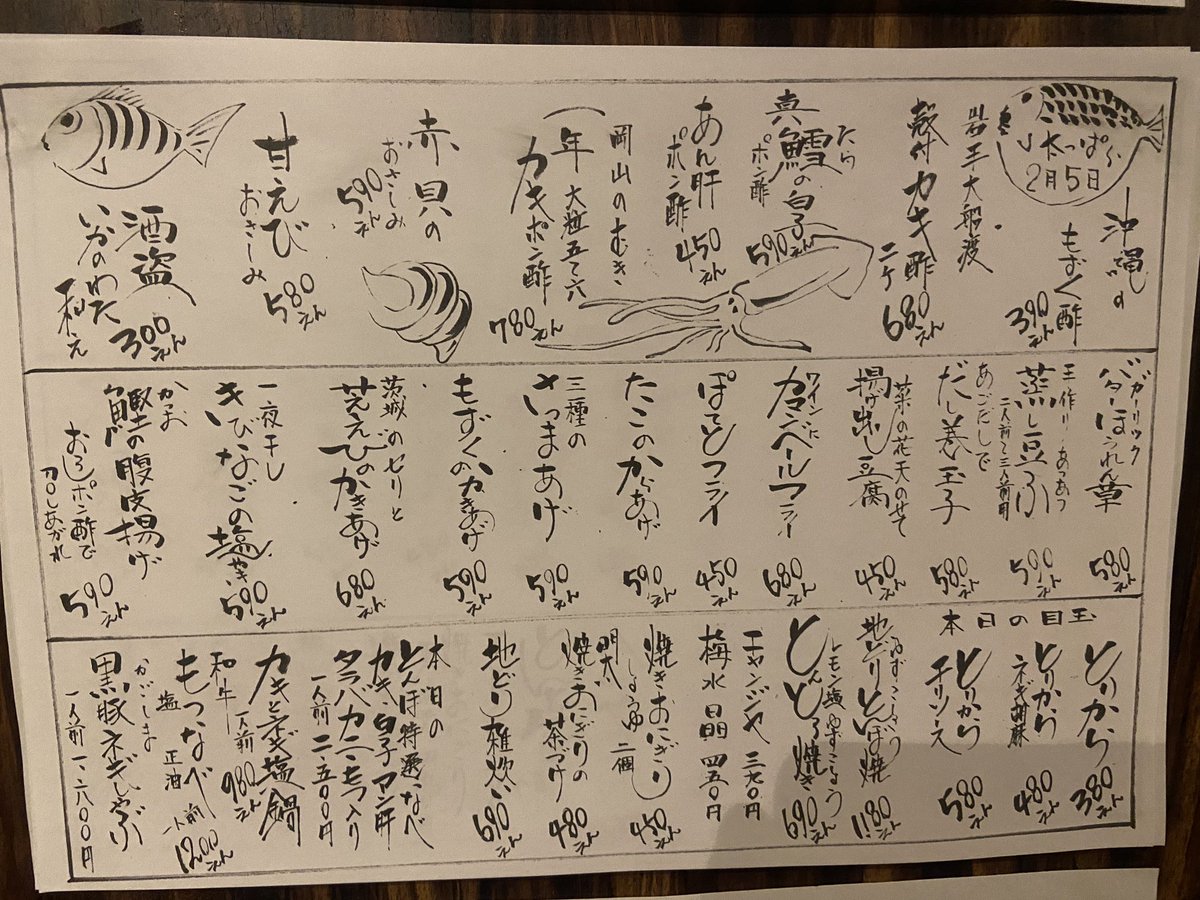 水っぱ
2月5日
沖縄の
もずく酢
390えん
岩手大船渡
殻付カキ酢
二ケ
680えん
たら
真鱈の白子
ポン酢
590えん
あん肝
ポン酢
450えん
岡山のむき
一年
大粒五〜六
カキポン酢
780えん
赤貝の
おさしみ
590えん
甘えび
おさしみ
580えん
酒盗
いかのわた
和え
300えん
ガーリック
バターほうれん草
580えん
あつあつ
蒸し豆ふ
二人前〜三人前用
590えん
あごだしで
だし巻玉子
580えん
菜の花天のせて
揚げ出し豆腐
450えん
ワインに
カマンベールフライ
680えん
ぽてとフライ
450えん
たこのからあげ
590えん
三種の
さつまあげ
590えん
もずくのかきあげ
590えん
茨城のセリと
芝えびのかきあげ
680えん
一夜干し
きびなごの塩やき
590えん
かつお
鰹の腹皮揚げ
おろしポン酢で
召しあがれ
590えん
本日の目玉
とりから
380えん
とりから
ネギ胡麻
480えん
とりから
チリソース
580えん
ゆずこしょう
地どりとんぼ焼
1180えん
レモン塩ゆずこしょう
とんとろ焼き
690えん
チャンジャ 三九〇円
梅水晶 四五〇円
焼きおにぎり
しょうゆ 二個
450えん
明太
焼きおにぎりの
茶づけ
480えん
地どり雑炊
690えん
本日の
とんぼ特選なべ
カキ、白子アン肝
タラバカニも入り
一人前 二、五〇〇円
カキとネギ塩鍋
一人前 980えん
和牛
もつなべ
塩 正油
一人前
1200えん
かごしま
黒豚ネギしゃぶ
一人前 一、二八〇〇円